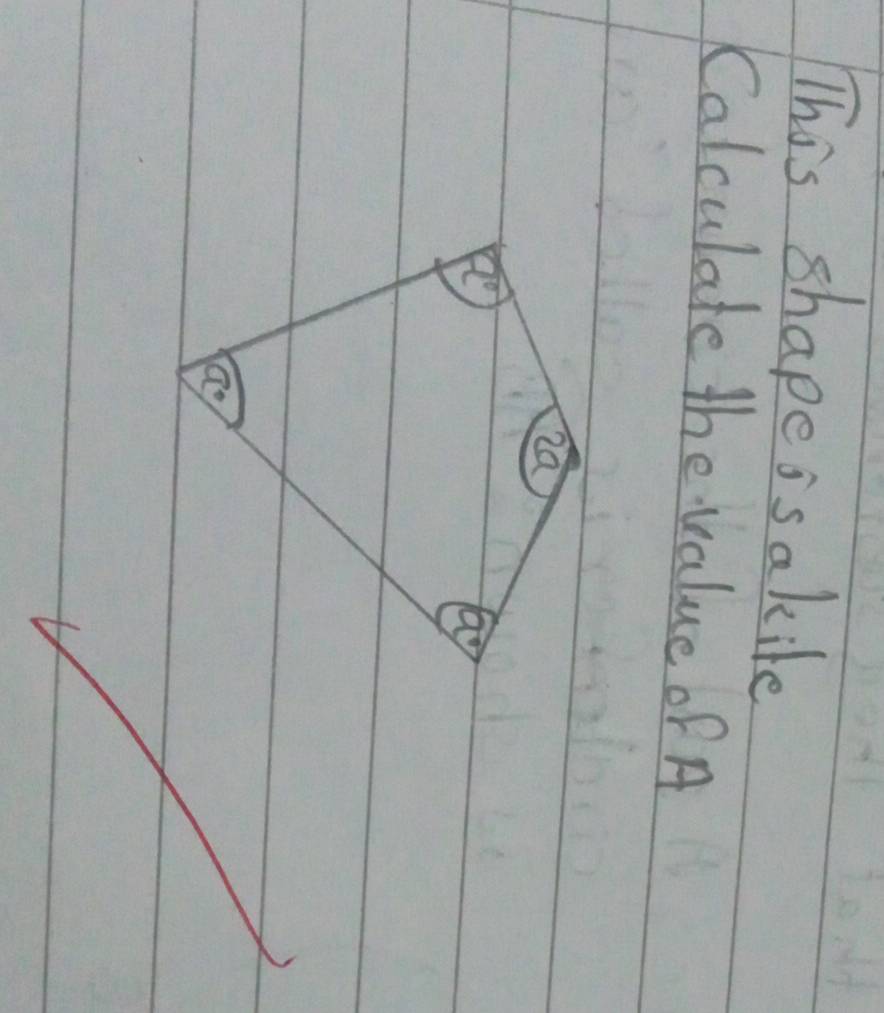 This shape is a kite
Calculate the value of A
a°
2a
a°
a°